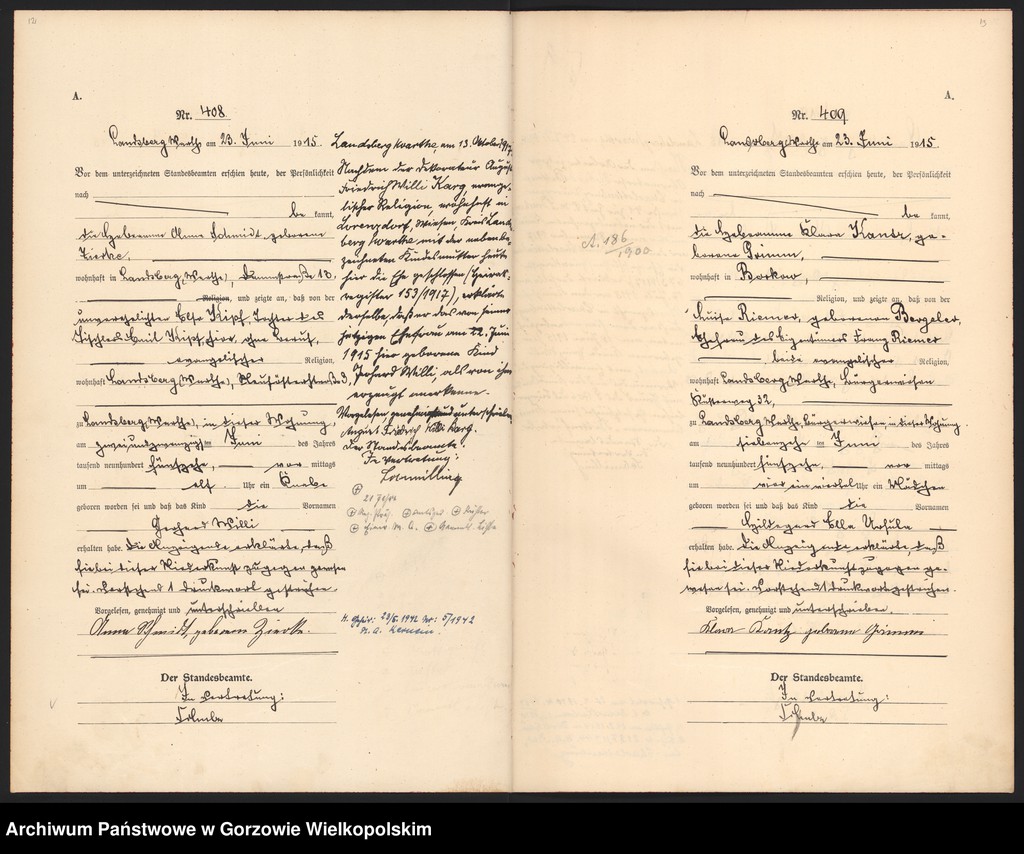 121
A.
Nr. 408.
Landsberg Warthe am 23. Juni 1915.
Vor dem unterzeichneten Standesbeamten erschien heute, der Persönlichkeit
nach
be kannt,
die Hebamme Anna Schmidt geborene
Zierke,
wohnhaft in Landsberg (Warthe), Dammstraße 18.
Religion, und zeigte an, daß von der
unverehelichten Else Kipf, Tochter des
Tischlers Emil Kipf, hier, ohne Beruf,
evangelischer Religion,
wohnhaft Landsberg (Warthe), 3,
zu Landsberg (Warthe), in dieser Wohnung,
am zweiundzwanzigsten Juni des Jahres
tausend neunhundert fünfzehn, vor mittags
um elf Uhr ein Knabe
geboren worden sei und daß das Kind die Vornamen
Gerhard Willi
erhalten habe. Die Anzeigende erklärte, daß
sie bei dieser Niederkunft zugegen gewesen
sei. Vorstehend 1 Druckwort gestrichen.
Vorgelesen, genehmigt und unterschrieben
Anna Schmidt, geborene Zierke.
Der Standesbeamte.
In Vertretung:
Landsberg Warthe, am 13. Oktober 1917.
Nachdem der Dekorateur August
Friedrich Willi Karg, evange-
lischer Religion, wohnhaft in
Lorenzdorf, Wiesen, Kreis Lands-
berg Warthe, mit der nebenbe-
zeichneten Kindesmutter heute
hier die Ehe geschlossen (Heirats-
register 153/1917), erklärte
derselbe, daß er das von seiner
jetzigen Ehefrau am 22. Juni
1915 hier geborene Kind
Gerhard Willi, als von ihm
erzeugt anerkenne.
Vorgelesen, genehmigt und unterschrieben
August Friedrich Willi Karg.
Der Standesbeamte.
In Vertretung:
H. 29/5. 1942 Nr: 5/1942
St. A.
13
A.
Nr. 409
Landsberg Warthe am 23. Juni 1915.
Vor dem unterzeichneten Standesbeamten erschien heute, der Persönlichkeit
nach
be kannt,
die Hebamme Klara Kantz, ge-
borene Grimm,
wohnhaft in Borkow,
Religion, und zeigte an, daß von der
Luise Riemer, geborenen Bergeler,
Ehefrau des Eigentümers Franz Riemer
beide evangelischer Religion,
wohnhaft Landsberg Warthe, Bürgerwiesen
32,
zu Landsberg Warthe, Bürgerwiesen in dieser Wohnung.
am siebenzehn ten Juni des Jahres
tausend neunhundert fünfzehn, vor mittags
um vier ein viertel Uhr ein Mädchen
geboren worden sei und daß das Kind die Vornamen
Hildegard Ella Ursula
erhalten habe. Die Anzeigende erklärte, daß
sie bei dieser Niederkunft zugegen ge-
wesen sei. Vorstehend 1 Druckwort gestrichen.
Vorgelesen, genehmigt und unterschrieben.
Klara Kantz geborene Grimm
Der Standesbeamte.
In Vertretung:
A. 186
/1900
Archiwum Państwowe w Gorzowie Wielkopolskim